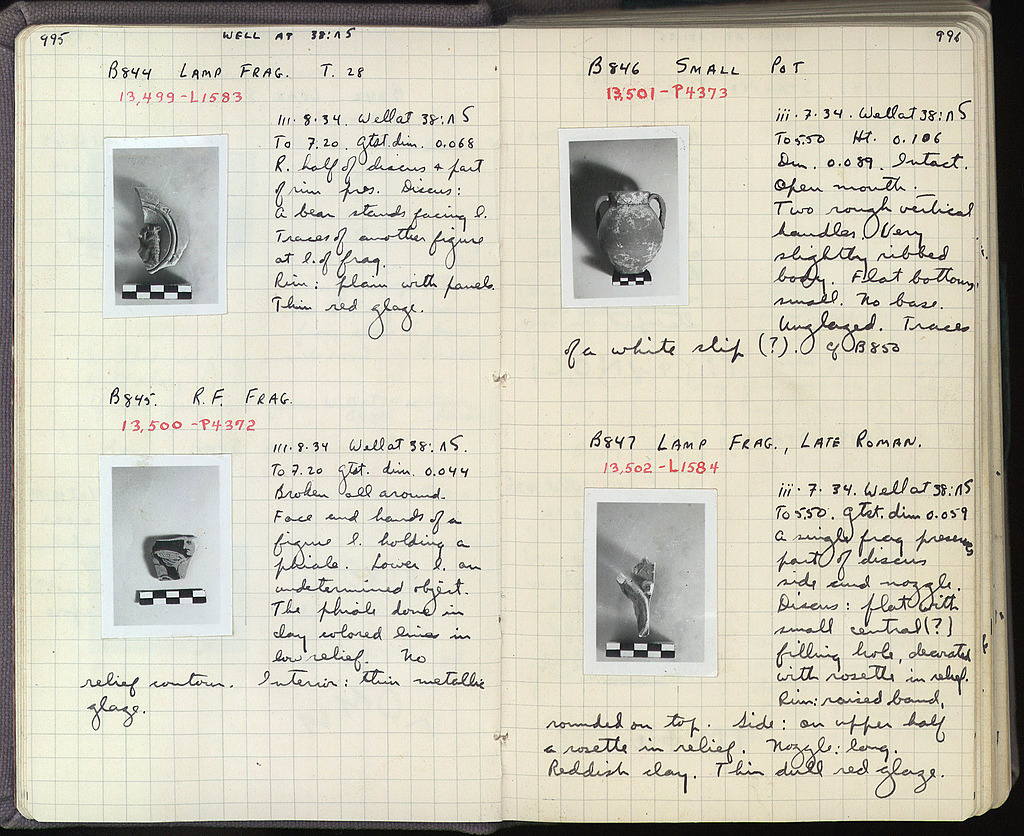 995
WELL AT 38:ΛS
B844 LAMP FRAG. T. 28
13,499-L1583
iii.8.34. Well at 38:ΛS
To 7.20. Gtst. dim. 0.068
R. half of discus & part
of rim pres. Discus:
a bear stands facing l.
Traces of another figure
at l. of frag.
Rim: plain with panels.
Thin red glaze.
B845. R.F. FRAG.
13,500-P4372
iii.8.34 Well at 38:ΛS.
To 7.20 Gtst. dim. 0.044
Broken all around.
Face and hands of a
figure l. holding a
phiale. Lower l. an
undetermined object.
The phiale done in
clay colored lines in
low relief. No
relief contour. Interior: thin metallic
glaze.
996
B846 SMALL POT
13,501-P4373
iii.7.34. Well at 38:ΛS
To 5.50 Ht. 0.106
Dim. 0.089. Intact.
Open mouth.
Two rough vertical
handles. Very
slightly ribbed
body. Flat bottom,
small. No base.
Unglazed. Traces
of a white slip (?). Cf B850
B847 LAMP FRAG., LATE ROMAN.
13,502-L1584
iii.7.34. Well at 38:ΛS
To 5.50. Gtst. dim 0.059
A single frag preserves
part of discus
side and nozzle.
Discus: flat with
small central (?)
filling hole, decorated
with rosette in relief.
Rim: raised band,
rounded on top. Side: on upper half
a rosette in relief. Nozzle: long.
Reddish clay. Thin dull red glaze.